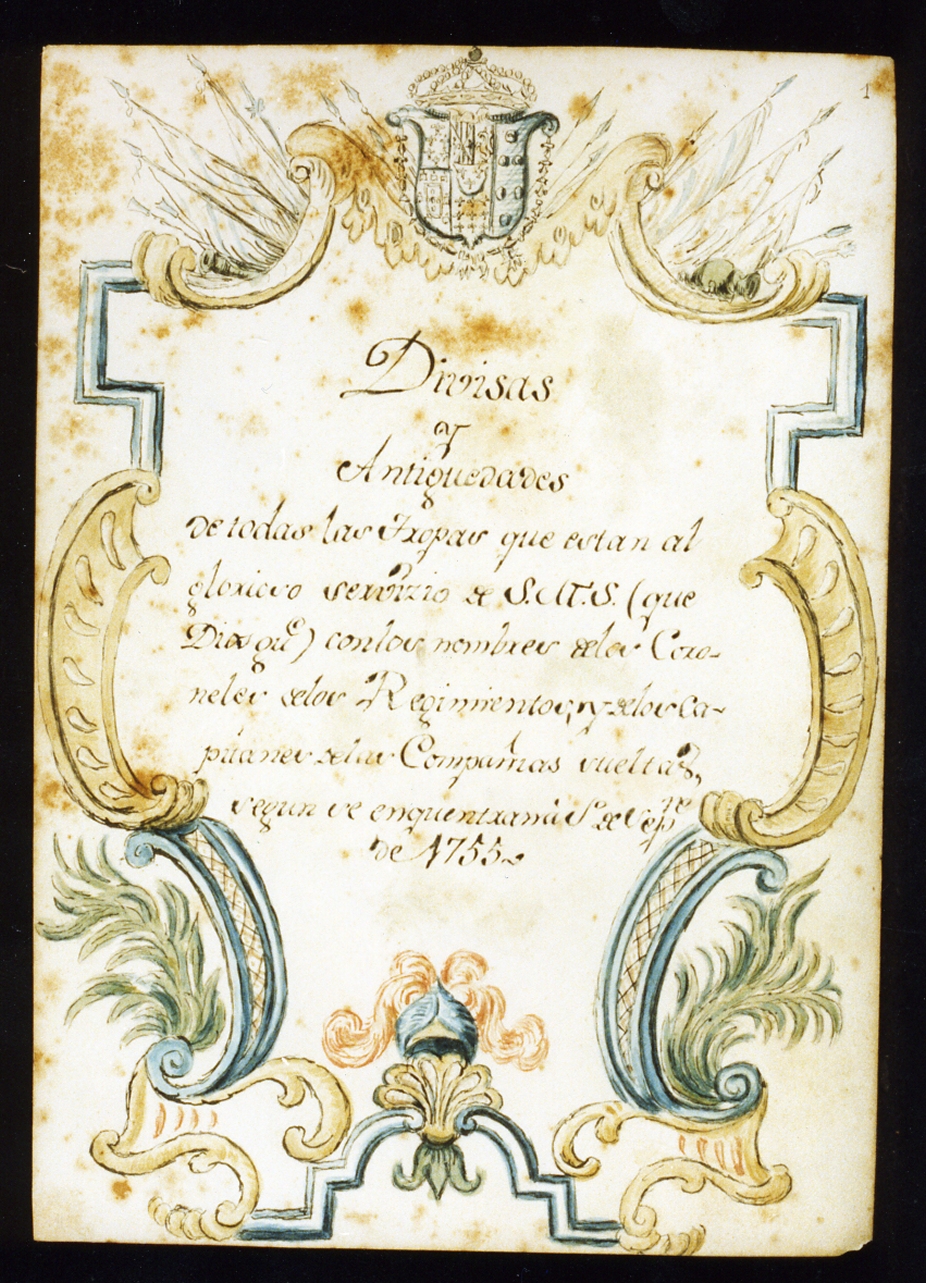 1
Divisas
Y
Antiguedades
de todas las Tropas que estan al
glorioso servizio de S.M.S. (que
Dios gue) con los nombres de los Coro-
neles de los Regimientos, y de los Ca-
pitanes de las Compañias sueltas,
segun se enquentran á de Sepre
de 1755